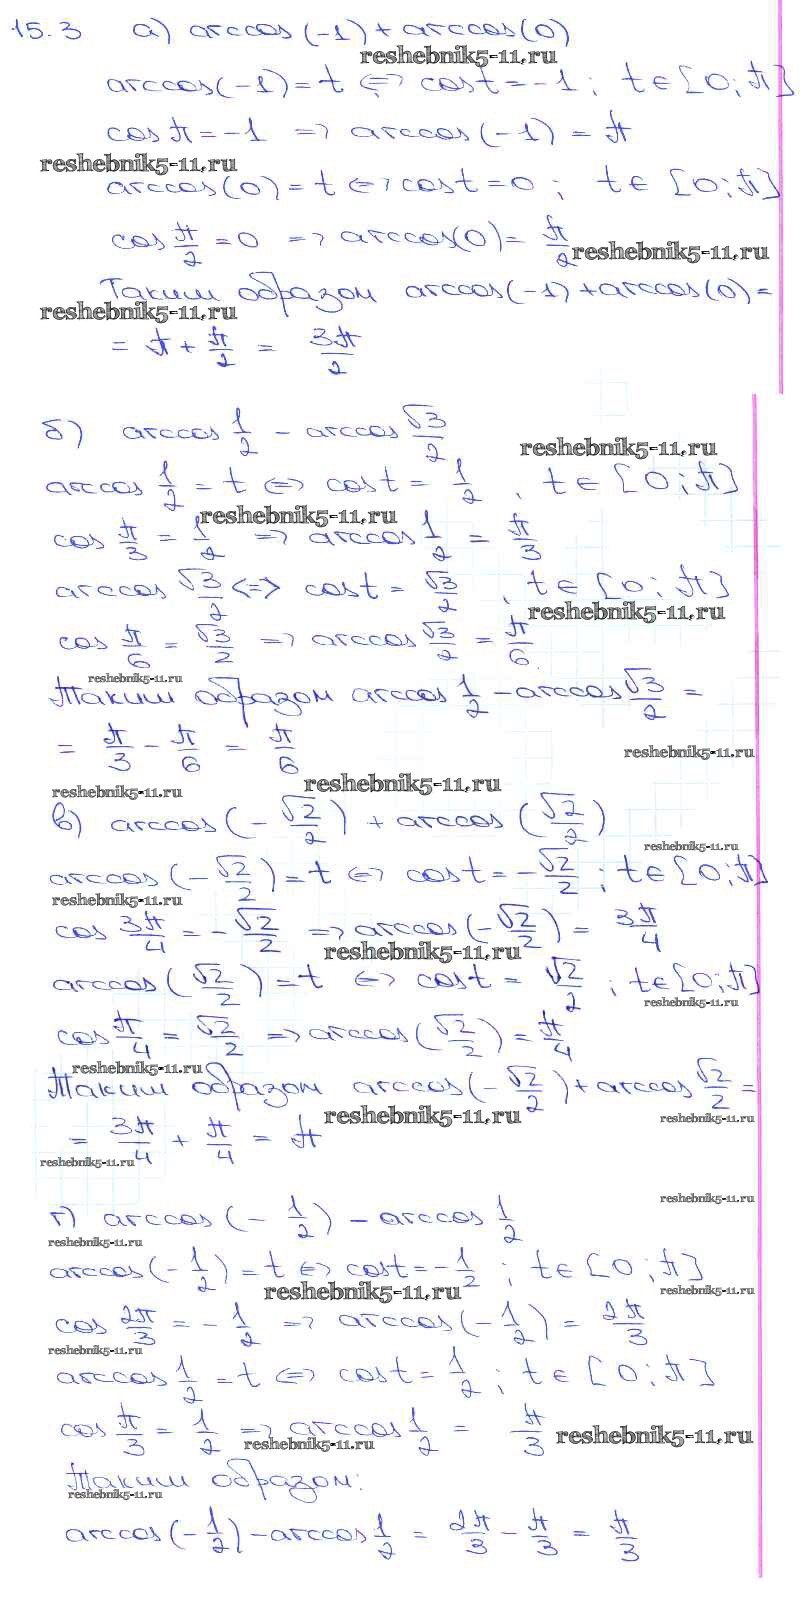 15.3 а) arccos(-1) + arccos(0)
reshebnik5-11.ru
arccos(-1) = t <=> cos t = -1 ; t ∈ [0; π]
cos π = -1 => arccos(-1) = π
reshebnik5-11.ru
arccos(0) = t <=> cos t = 0 ; t ∈ [0; π]
cos π/2 = 0 => arccos(0) = π/2
reshebnik5-11.ru
Таким образом arccos(-1) + arccos(0) =
reshebnik5-11.ru
= π + π/2 = 3π/2
б) arccos 1/2 - arccos √3/2
reshebnik5-11.ru
arccos 1/2 = t <=> cos t = 1/2 , t ∈ [0; π]
reshebnik5-11.ru
cos π/3 = 1/2 => arccos 1/2 = π/3
arccos √3/2 <=> cos t = √3/2 , t ∈ [0; π]
reshebnik5-11.ru
cos π/6 = √3/2 => arccos √3/2 = π/6.
reshebnik5-11.ru
Таким образом arccos 1/2 - arccos √3/2 =
= π/3 - π/6 = π/6
reshebnik5-11.ru
reshebnik5-11.ru
reshebnik5-11.ru
в) arccos(-√2/2) + arccos(√2/2)
reshebnik5-11.ru
arccos(-√2/2) = t <=> cos t = -√2/2 ; t ∈ [0; π]
reshebnik5-11.ru
cos 3π/4 = -√2/2 => arccos(-√2/2) = 3π/4
reshebnik5-11.ru
arccos(√2/2) = t <=> cos t = √2/2 ; t ∈ [0; π]
reshebnik5-11.ru
cos π/4 = √2/2 => arccos(√2/2) = π/4
reshebnik5-11.ru
Таким образом arccos(-√2/2) + arccos √2/2 =
reshebnik5-11.ru
reshebnik5-11.ru
= 3π/4 + π/4 = π
reshebnik5-11.ru
reshebnik5-11.ru
г) arccos(-1/2) - arccos 1/2
reshebnik5-11.ru
arccos(-1/2) = t <=> cos t = -1/2 ; t ∈ [0; π]
reshebnik5-11.ru
reshebnik5-11.ru
cos 2π/3 = -1/2 => arccos(-1/2) = 2π/3
reshebnik5-11.ru
arccos 1/2 = t <=> cos t = 1/2 ; t ∈ [0; π]
cos π/3 = 1/2 => arccos 1/2 = π/3
reshebnik5-11.ru
reshebnik5-11.ru
Таким образом:
reshebnik5-11.ru
arccos(-1/2) - arccos 1/2 = 2π/3 - π/3 = π/3